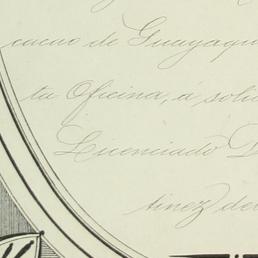 cacao de Guayaqui
ta Oficina, á soli
Licenciado D
tinez del